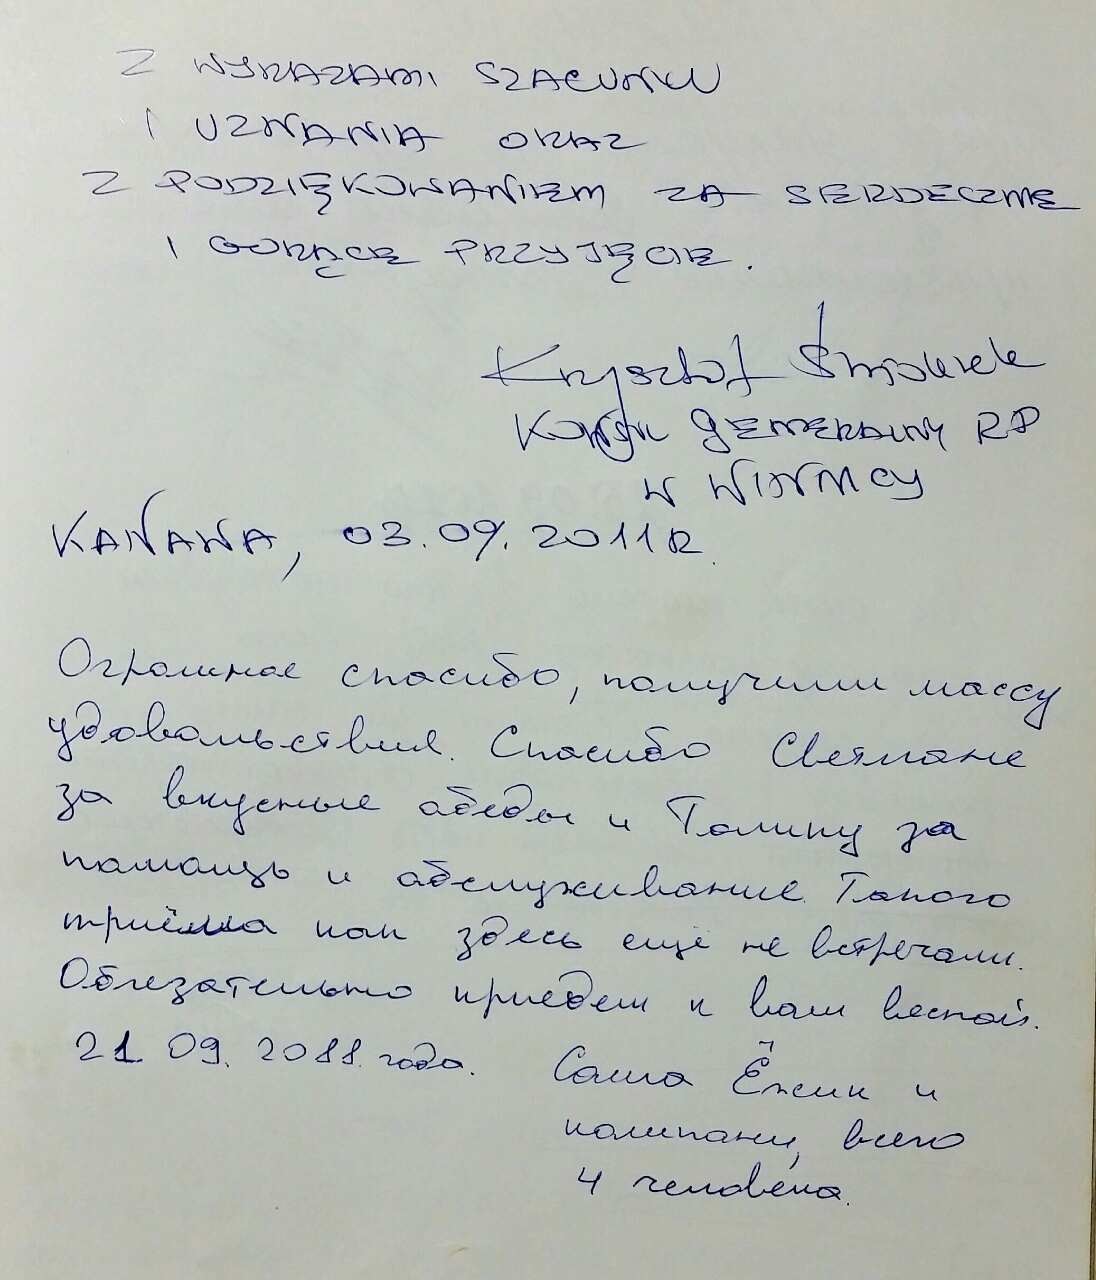 Z WYRAZAMI SZACUNKU
I UZNANIA ORAZ
Z PODZIĘKOWANIEM ZA SERDECZNE
I GORĄCE PRZYJĘCIE.
Krzysztof Świderek
Konsul GENERALNY RP
W WINNICY
KANAWA, 03.09.2011R.
Огромное спасибо, получили массу
удовольствия. Спасибо Светлане
за вкусные обеды и Толику за
помощь и обслуживание. Такого
приёма как здесь ещё не встречали.
Обязательно приедем к вам весной.
21.09.2011.года.
Саша Ёжик и
компани, всего
4 человека.